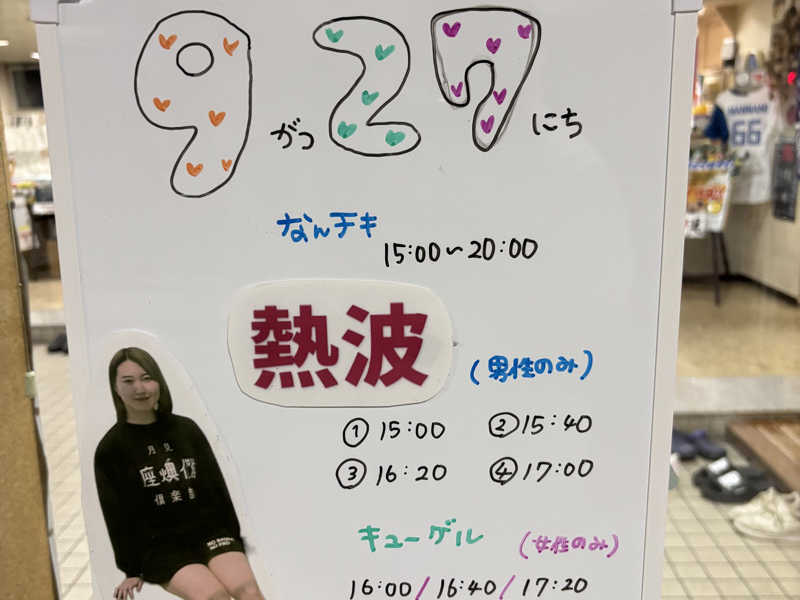 9がつ27にち
なんチキ
15:00〜20:00
熱波
(男性のみ)
① 15:00 ② 15:40
③ 16:20 ④ 17:00
キューゲル (女性のみ)
16:00/16:40/17:20
月見
倶楽部
66